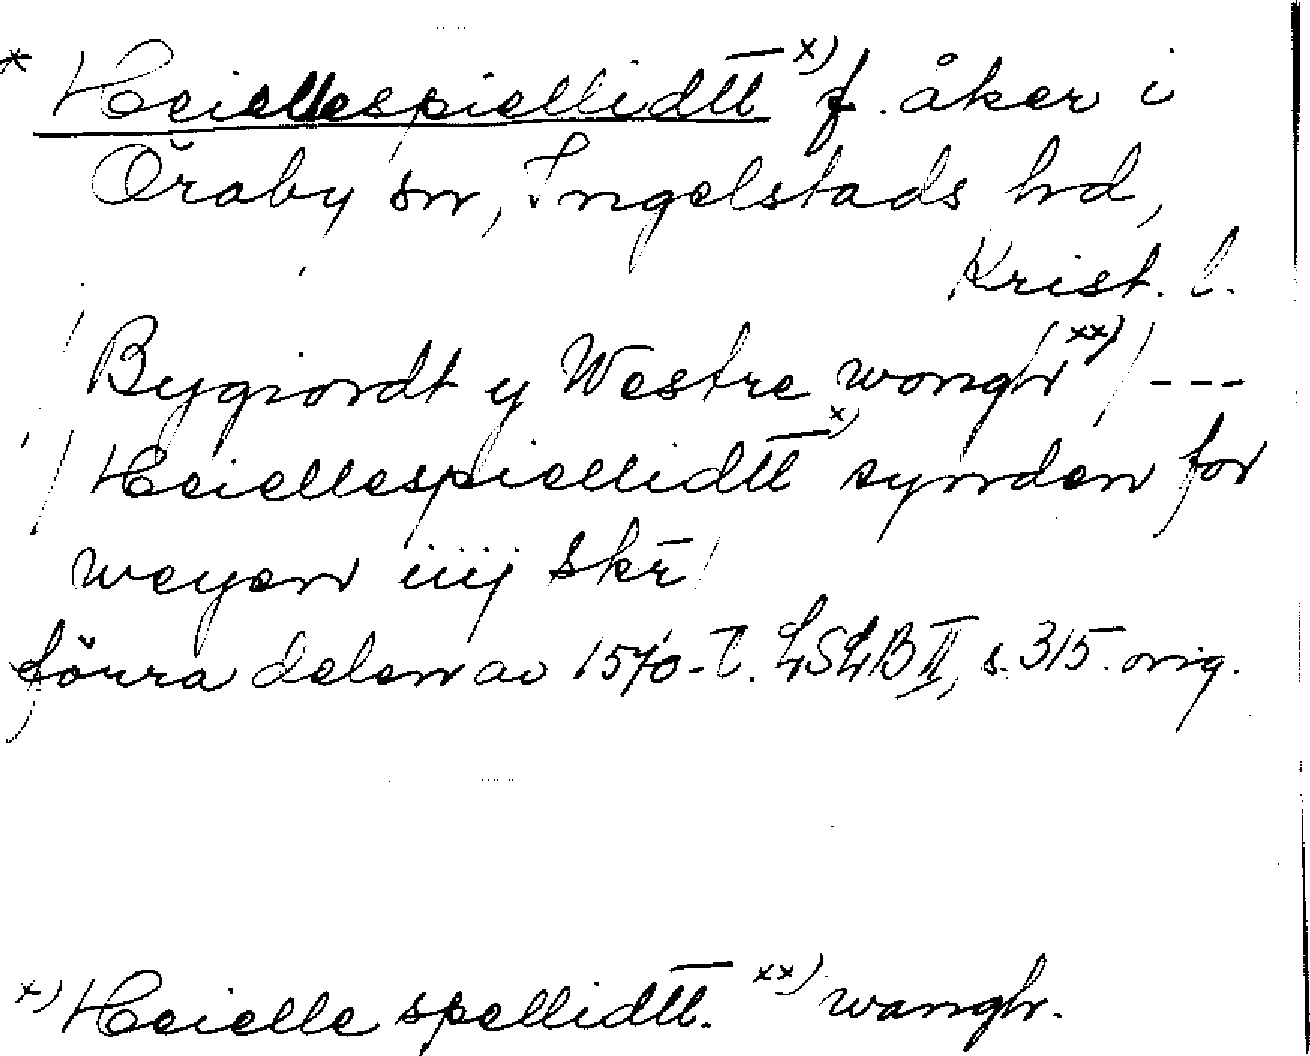 * Heiellespiellidtt̅ x) f. åker i
Öraby sn, Ingelstads hd,
Krist. l.
/ Bygiordt y Westre wongh xx) / ---
/ Heiellespiellidtt̅ x) synden for
weyen iiij skr̅ /
förra delen av 1570-t. LSLB II, s. 315. orig.
x) Heielle spellidtt̅. xx) wangh.